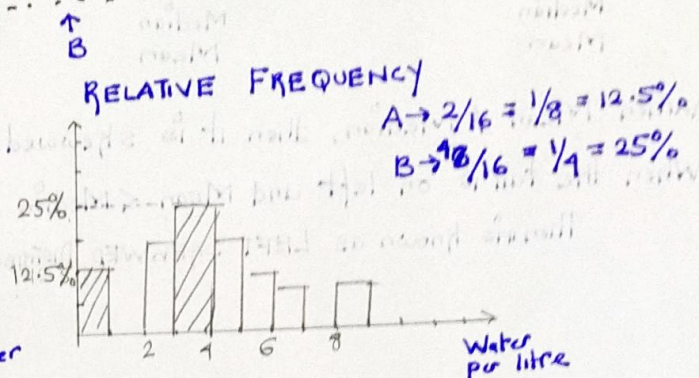 B
RELATIVE FREQUENCY
A→ 2/16 = 1/8 = 12.5%
B→ 4/16 = 1/4 = 25%
25%
12.5%
2 4 6 8
Water
per litre